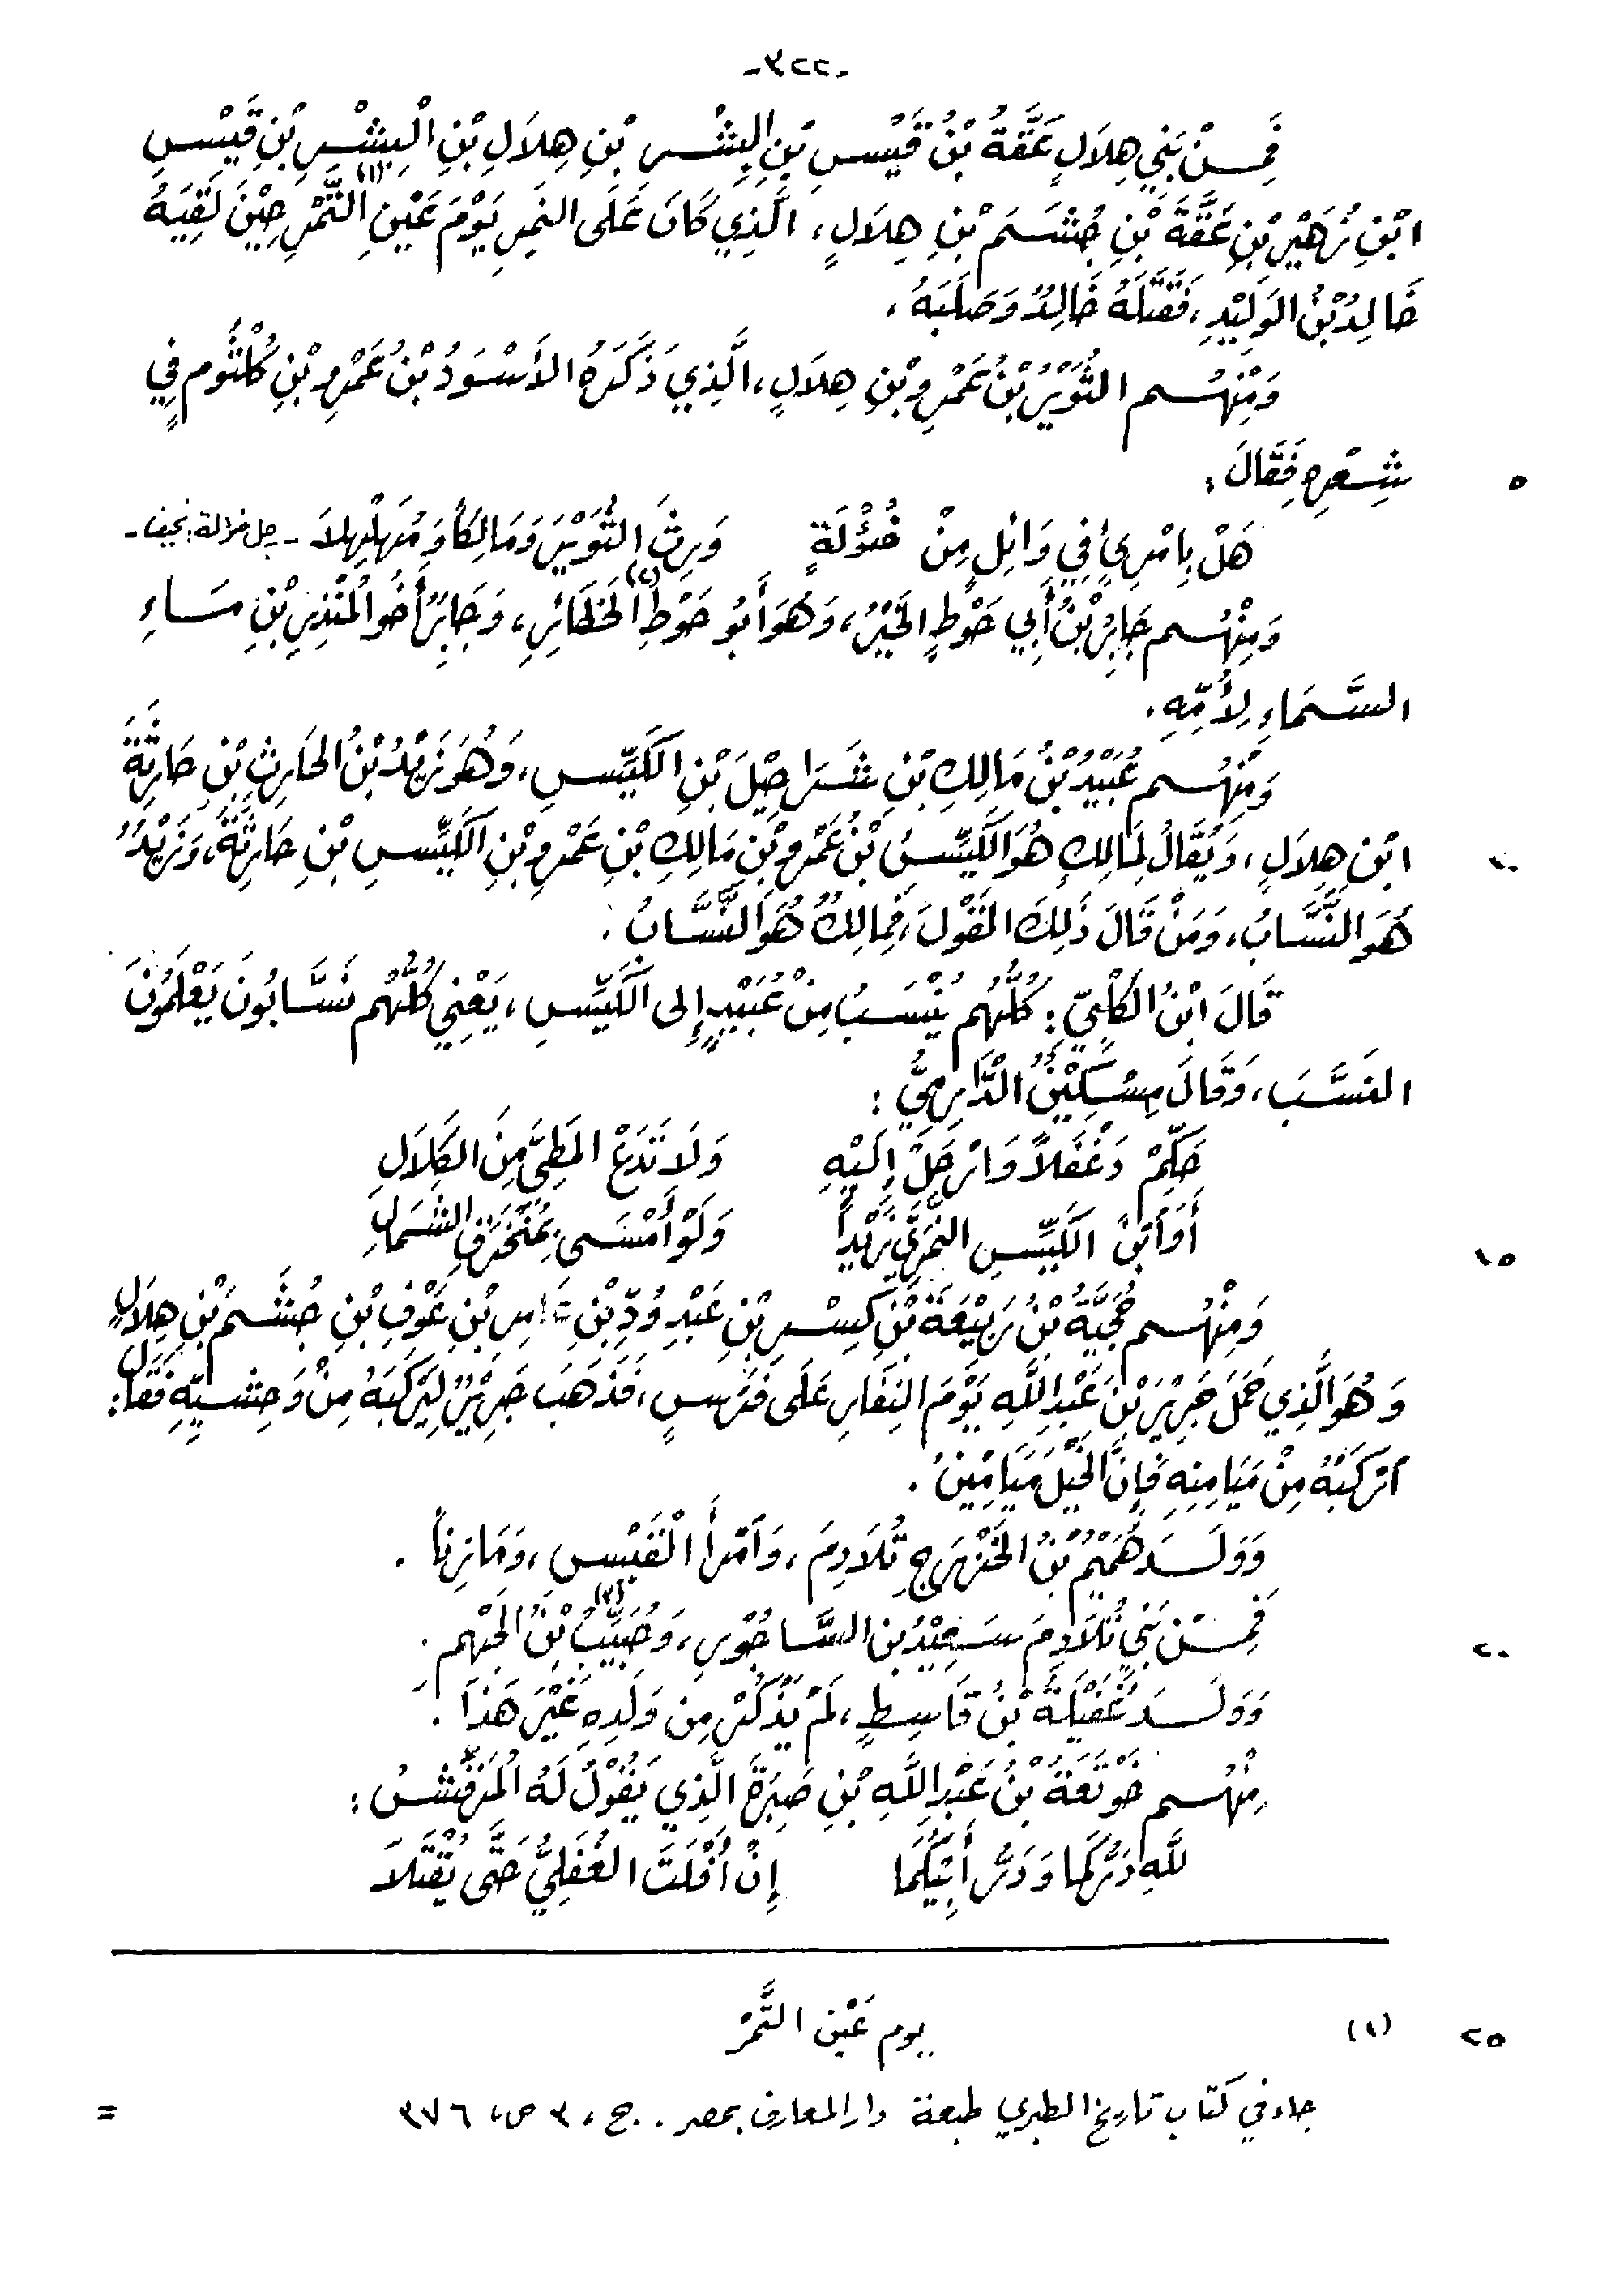 -٣٢٢-
فَمِنْ بَنِي هِلَالٍ عَقَّةُ بْنُ قَيْسِ بْنِ البِشْرِ بْنِ هِلَالِ بْنِ الْبِشْرِ بْنِ قَيْسِ
ابْنِ زُهَيْرِ بْنِ عَقَّةَ بْنِ جُشَمَ بْنِ هِلَالٍ، الَّذِي كَانَ عَلَى النَّمِرِ يَوْمَ عَيْنِ التَّمْرِ(١) حِيْنَ لَقِيَهُ
خَالِدُ بْنُ الوَلِيْدِ، فَقَتَلَهُ خَالِدٌ وَصَلَبَهُ،
وَمِنْهُم التُّوَيْرُ بْنُ عَمْرِو بْنِ هِلَالٍ، الَّذِي ذَكَرَهُ الأَسْوَدُ بْنُ عَمْرِو بْنِ كُلْثُومٍ فِي
٥ شِعْرِهِ فَقَالَ:
هَلْ بِامْرِئٍ فِي وَائِلٍ مِنْ ضُؤْلَةٍ وَرِثَ التُّوَيْرَ وَمَالِكاً وَمُهَلْهِلَا - رجل ضؤالة: نحيف -
وَمِنْهُم جَابِرُ بْنُ أَبِي حَوْطٍ الخَيْرُ، وَهُوَ أَبُو حَوْطِ(٢) الحَظَائِرِ، وَجَابِرٌ أَخُو المُنْذِرِ بْنِ مَاءِ
السَّمَاءِ لِأُمِّهِ.
وَمِنْهُم عُبَيْدُ بْنُ مَالِكِ بْنِ شَرَاحِيْلَ بْنِ الكَيِّسِ، وَهُوَ زَيْدُ بْنُ الحَارِثِ بْنِ حَارِثَةَ
١٠ ابْنِ هِلَالٍ، وَيُقَالُ لِمَالِكٍ هُوَ الكَيِّسُ بْنُ عَمْرِو بْنِ مَالِكِ بْنِ عَمْرِو بْنِ الكَيِّسِ بْنِ حَارِثَةَ، وَزَيْدٌ
هُوَ النَّسَّابُ، وَمَنْ قَالَ ذَلِكَ القَوْلَ، فَمَالِكٌ هُوَ النَّسَّابُ.
قَالَ ابْنُ الكَلْبِيّ: كُلُّهُم يُنْسَبُ مِنْ عُبَيْدٍ إِلى الكَيِّسِ، يَعْنِي كُلُّهُم نَسَّابُونَ يَعْلَمُونَ
النَّسَبَ، وَقَالَ مِسْكِيْنٌ الدَّارِمِيُّ:
حَكِّمْ دَغْفَلاً وَارْحَلْ إِلَيْهِ وَلَا تَدَعْ المَطِيَّ مِنَ الكَلَالِ
١٥ أَوَابْنَ الكَيِّسِ النَّمَرِيَّ زَيْداً وَلَوْ أَمْسَى بِمُنْخَرَقِ الشَّمَالِ
وَمِنْهُم حُجَيَّةُ بْنُ رَبِيْعَةَ بْنِ كِسْرِ بْنِ عَبْدِ وُدِّ بْنِ بْنِ عَوْفِ بْنِ جُشَمَ بْنِ هِلَالٍ
وَهُوَ الَّذِي حَمَلَ جَرِيْرَ بْنَ عَبْدِ اللَّهِ يَوْمَ النِّفَارِ عَلَى فَرَسٍ، فَذَهَبَ جَرِيْرٌ لِيَرْكَبَهُ مِنْ وَحِشيِّهِ فَقَالَ:
ارْكَبْهُ مِنْ مَيَامِنِهِ فَإِنَّ الخَيْلَ مَيَامِيْنُ.
وَوَلَدَ هُمَيْمُ بْنُ الخَزْرَجِ تُلَادِمَ، وَامْرَأَ الْقَيْسِ، وَمَازِناً.
٢٠ فَمِنْ بَنِي تُلَادِمَ سَعِيْدُ بن السَّاجُوْرِ، وَحُبَيِّبُ(٣) بْنُ الجَهْمِ.
وَوَلَدَ غُفَيْلَةُ بْنُ قَاسِطٍ، لَمْ يَذْكُرْ مِن وَلَدِهِ غَيْرَ هَذَا.
مِنْهُم خَوْتَعَةُ بْنُ عَبْدِ اللَّهِ بْنِ صَبِرَةَ الَّذِي يَقُوْلُ لَهُ المُرَقِّشُ:
للَّهِ دَرُّكُمَا وَدَرُّ أَبِيْكُمَا إِنْ أَفْلَتَ الغُفَلِيُّ حَتَّى يُقْتَلَا
٢٥ (١) يوم عَيْن التَّمْرْ
جاء في كتاب تاريخ الطبري طبعة دار المعارف بمصر. ج، ٣ ص، ٣٧٦ =